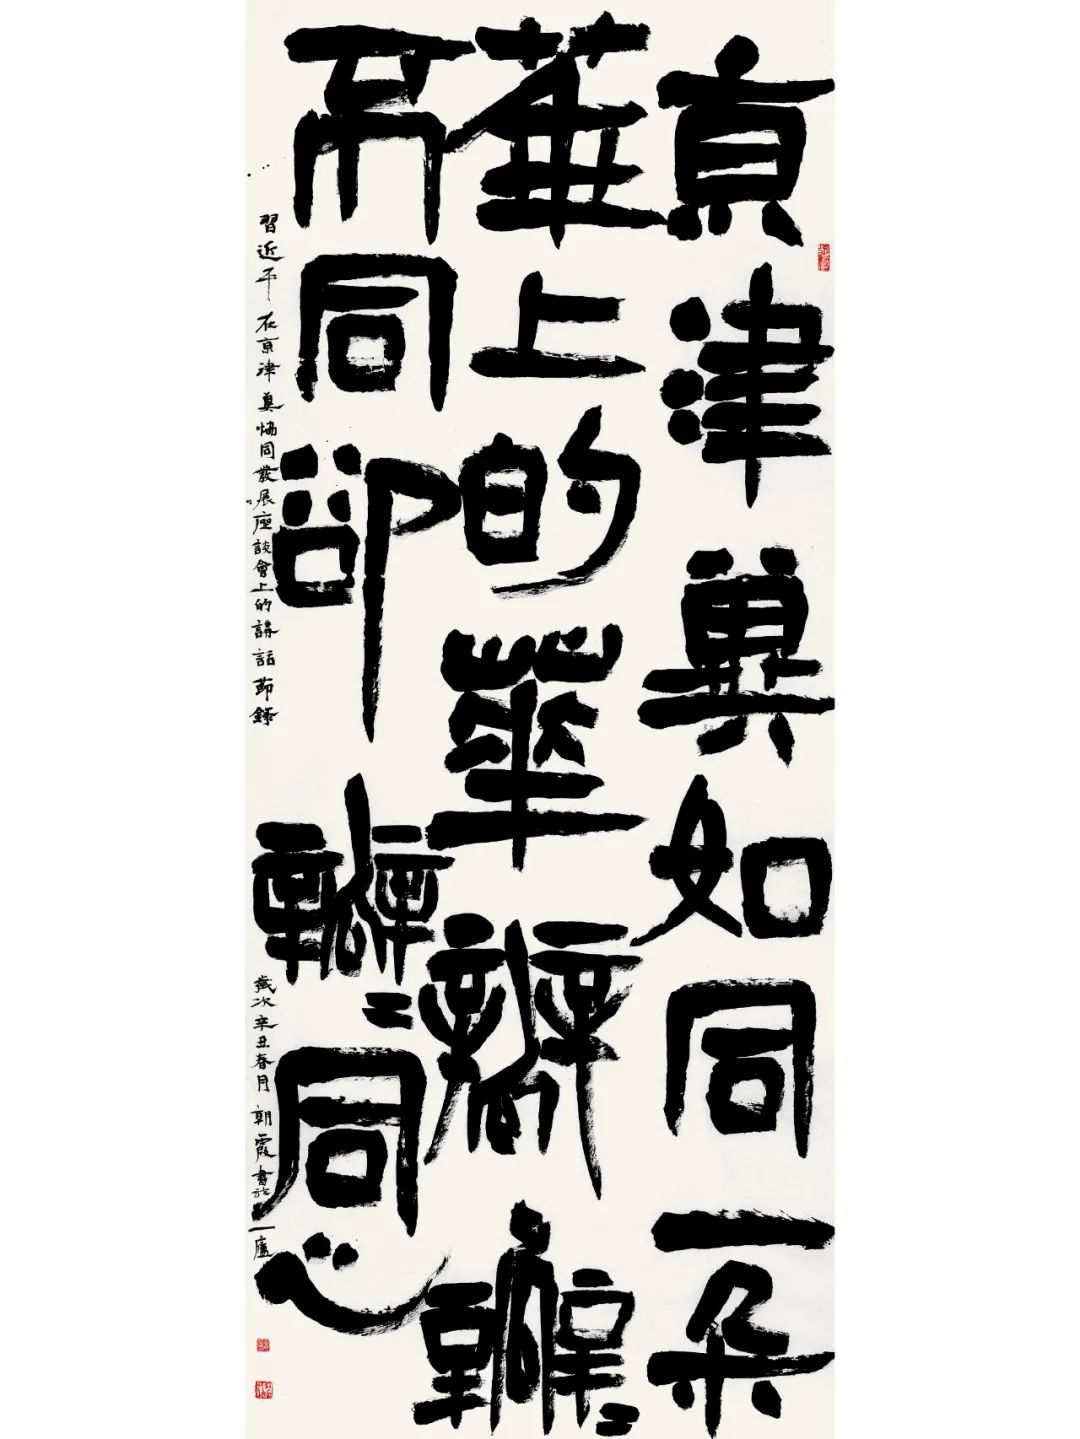 京津冀如同一朵
華上的華瓣瓣〻
不同卻瓣〻同心
習近平在京津冀協同發展座談會上的講話節錄
歲次辛丑春月朝霞書於一廬